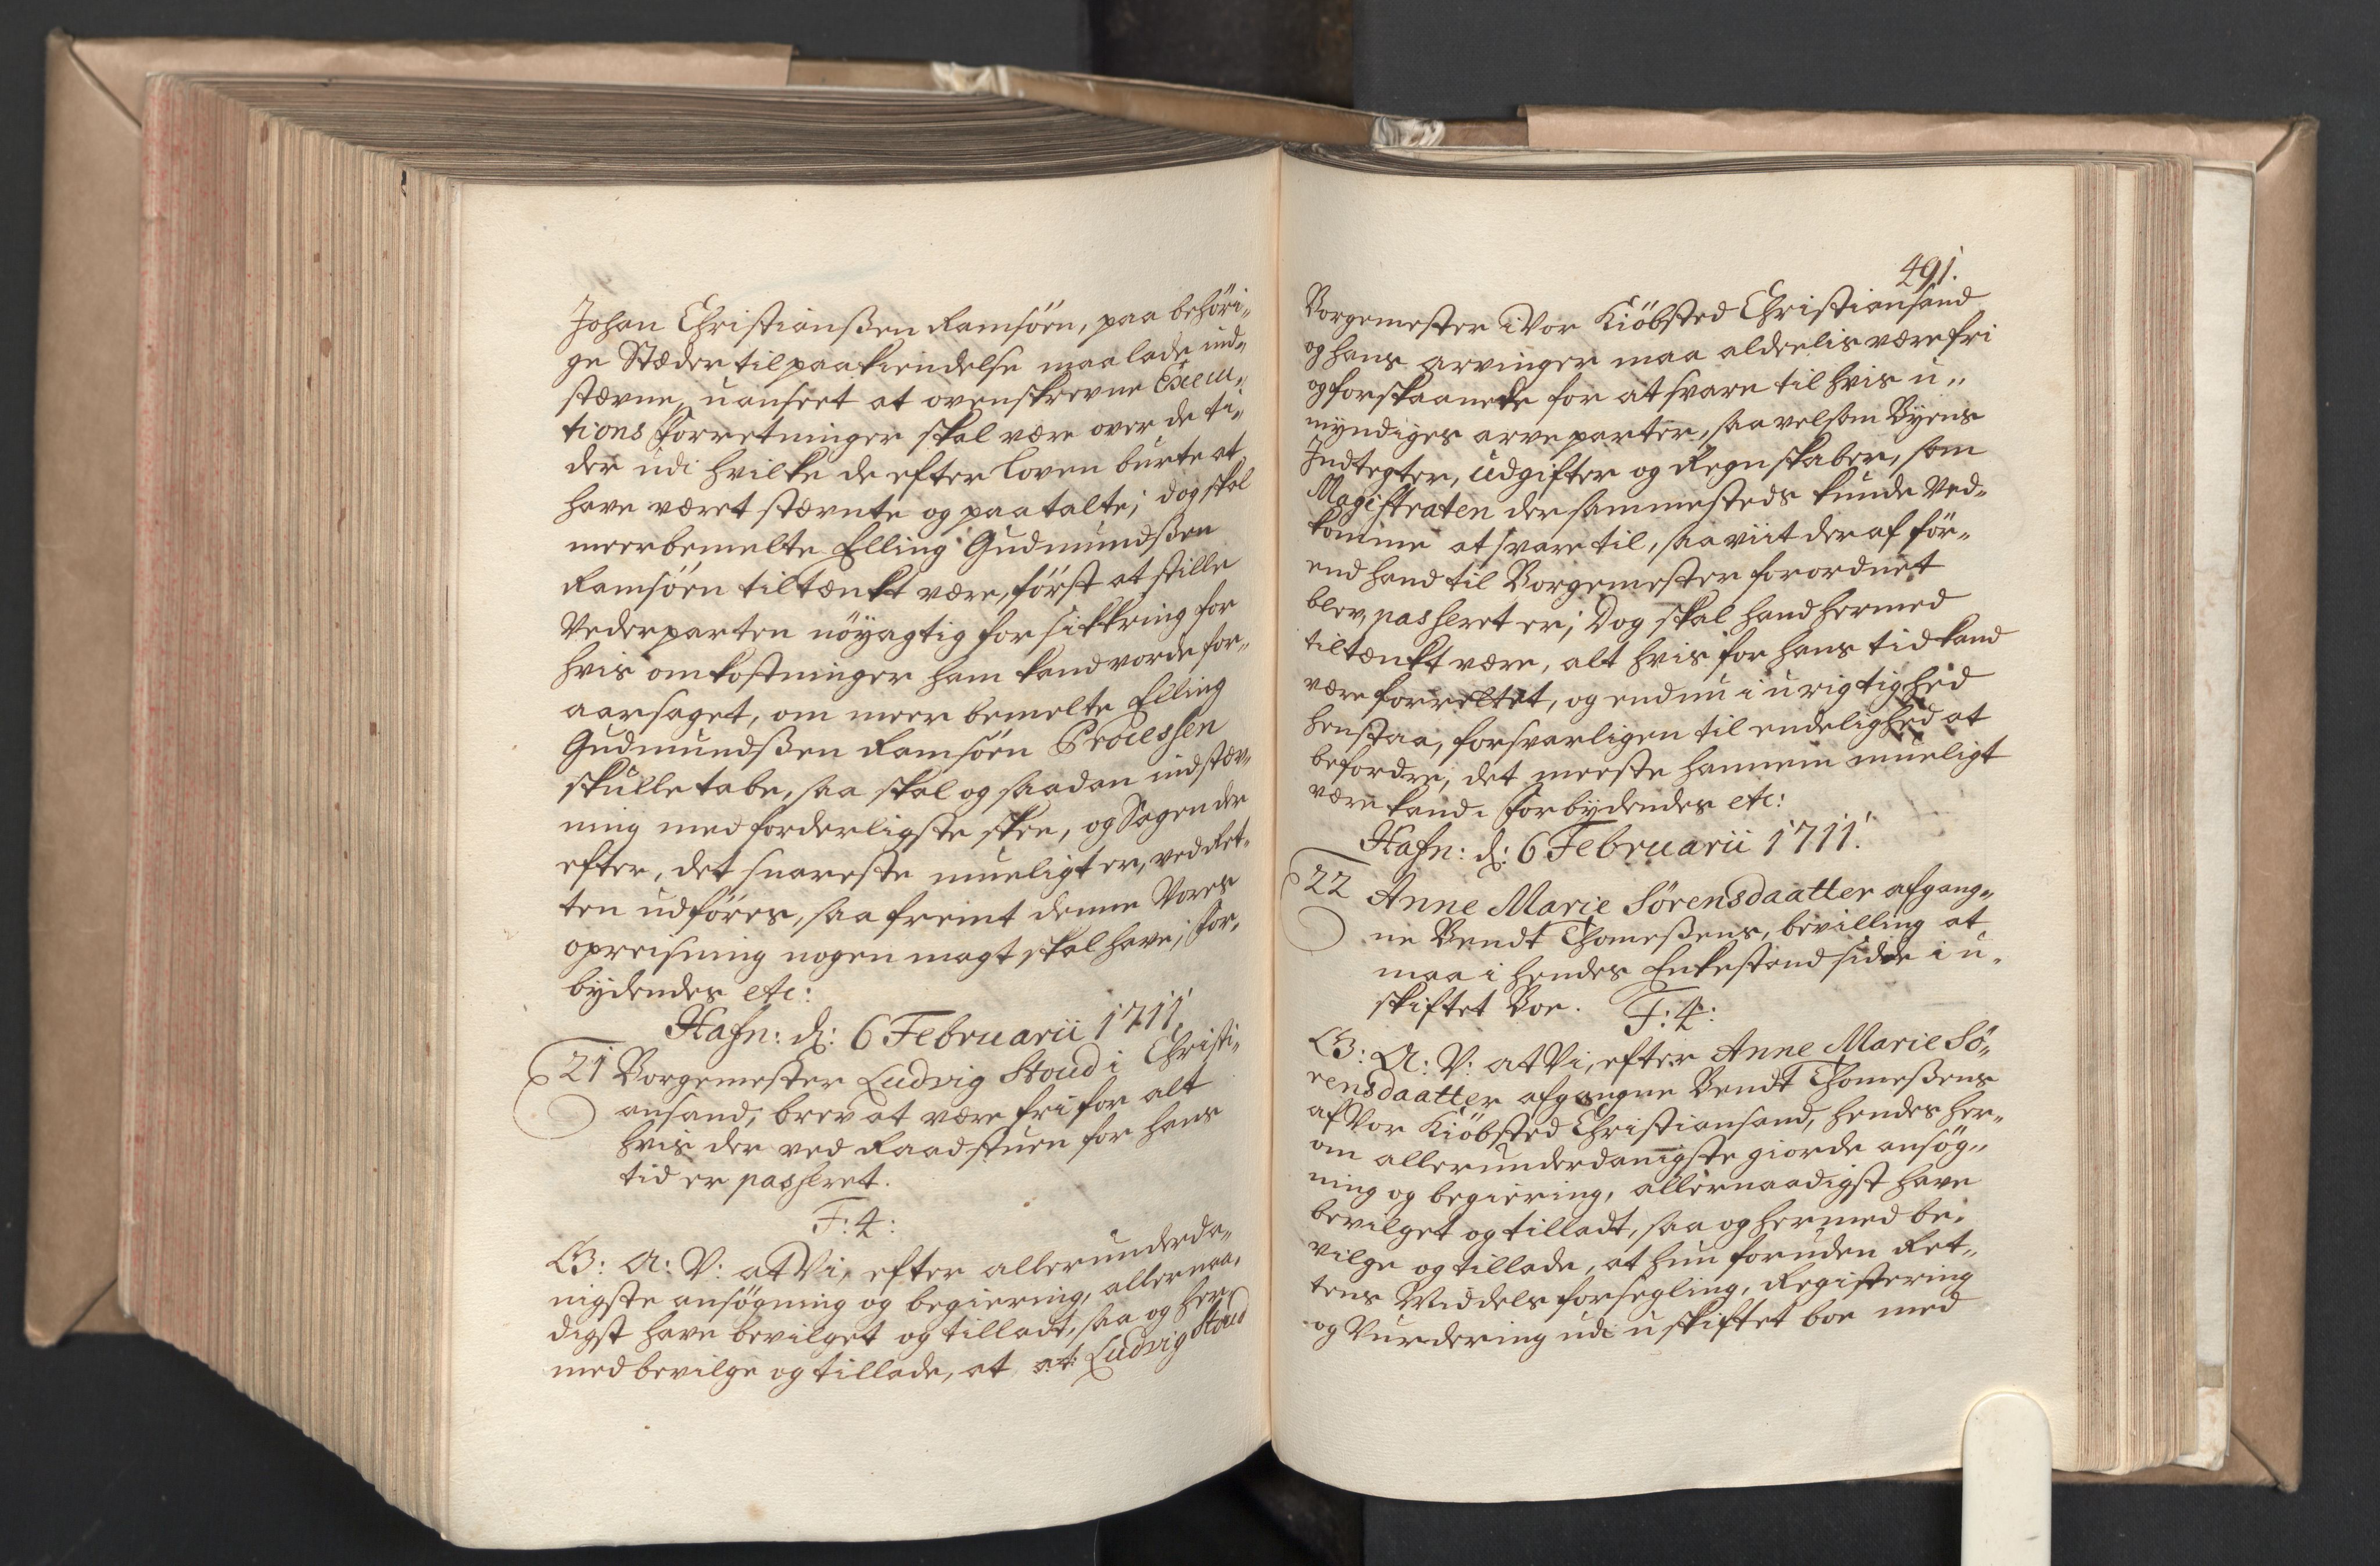 Johan Christianßen Ramsöen, paa behöri„
ge Stæder til paakiendelse maa lade ind„
stævne, uanseet at ovenskrevne Execu„
tions Forretninger skal være over de ti„
der udi hvilke de efter Loven burte at
have været stævnte og paatalte; dog skal
meerbemelte Elling Gudmundsßen
Ramsöen tiltænkt være, först at stille
Vederparten nöyagtig forsikkring for
hvis omkostninger ham kand vorde for„
aarsaget, om meer bemelte Elling
Gudmundsßen Ramsöen Processen
skulle tabe, saa skal og saadan indstæv„
ning med forderligste skee, og Sagen der
efter, det snareste mueligt er, ved Ret„
ten udföres, saa fremt denne Vores
opreisning nogen magt skal have; For„
bydendes etc:
Hafn: d: 6 Februarii 1711.
21 Borgemester Ludvig Stoud i Christi„
ansand, brev at være fri for alt
hvis der ved Raadstuen for hans
tid er passeret.
F: 4:
G: A: V: at Vi, efter allerunderda„
nigste ansögning og begiering, allernaa„
digst have bevilget og tilladt, saa og her
med bevilge og tillade, at at Ludvig Stoud
491.
Borgemester i Vor Kiöbsted Christiansand
og hans arvinger maa aldeelis være fri
og forskaanede for at svare til hvis u„
myndiges arveparter, saavelsom Byens
Indtegter, Udgifter og Regnskaber, som
Magistraten dersammesteds kunde ved„
komme at svare til, saa viit deraf för„
end hand til Borgemester forordnet
blev, passeret er; Dog skal hand hermed
tiltænkt være, alt hvis for hans tid kand
være forrettet, og endnu i urigtighed
henstaa, forsvarligen til endelighed at
befordre, det meeste hannem mueligt
være kand. Forbydendes etc:
Hafn: d: 6 Februarii 1711.
22 Anne Marie Sörensdaatter afgang„
ne Bendt Thomeßens, bevilling at
maa i hendes Enkestand sidde i u„
skiftet Boe. F: 4:
G: A: V: at Vi, efter Anne Marie Sö„
rensdaatter afgangne Bendt Thomeßens
af Vor Kiöbsted Christiansand, hendes her„
om allerunderdanigste giorde ansög„
ning og begiering, allernaadigst have
bevilget og tilladt, saa og hermed be„
vilge og tillade, at hun foruden Ret„
tens Middels forsegling, Registering
og Vurdering udi uskiftet boe med